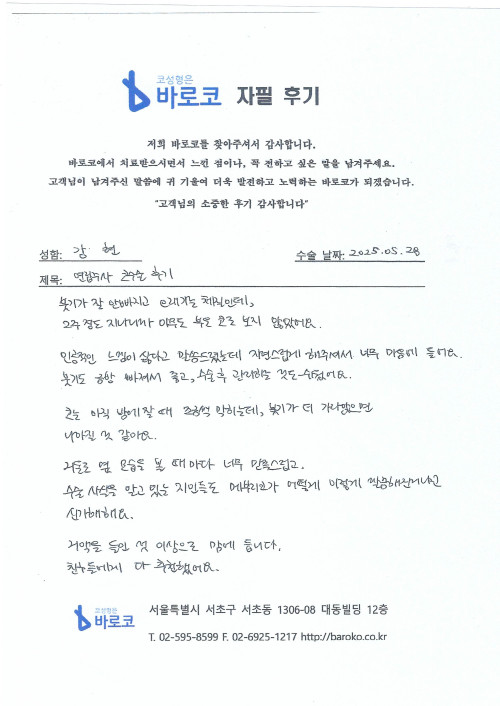 코성형은
바로코 자필 후기
저희 바로코를 찾아주셔서 감사합니다.
바로코에서 치료받으시면서 느낀 점이나, 꼭 전하고 싶은 말을 남겨주세요.
고객님이 남겨주신 말씀에 귀 기울여 더욱 발전하고 노력하는 바로코가 되겠습니다.
"고객님의 소중한 후기 감사합니다"
성함: 강 현
수술 날짜: 2025.05.28
제목: 코수술 후기
붓기가 잘 안빠지고 오래가는 체질인데,
2주 정도 지나니까 아무도 부은 코로 보지 않았어요.
인공적인 느낌이 싫다고 말씀드렸는데 자연스럽게 해주셔서 너무 마음에 들어요.
붓기도 금방 빠져서 좋고, 수술 후 관리하는 것도 수월했어요.
코는 아직 밤에 잘 때 조금씩 막히는데, 붓기가 더 가라앉으면
나아질 것 같아요.
거울로 옆 모습을 볼 때마다 너무 만족스럽고.
수술 사실을 알고 있는 지인들도 매부리코가 어떻게 이렇게 깔끔해졌냐고
신기해해요.
거액을 들인 것 이상으로 맘에 듭니다.
친구들에게 다 추천했어요.
코성형은
바로코
서울특별시 서초구 서초동 1306-08 대동빌딩 12층
T. 02-595-8599 F. 02-6925-1217 http://baroko.co.kr